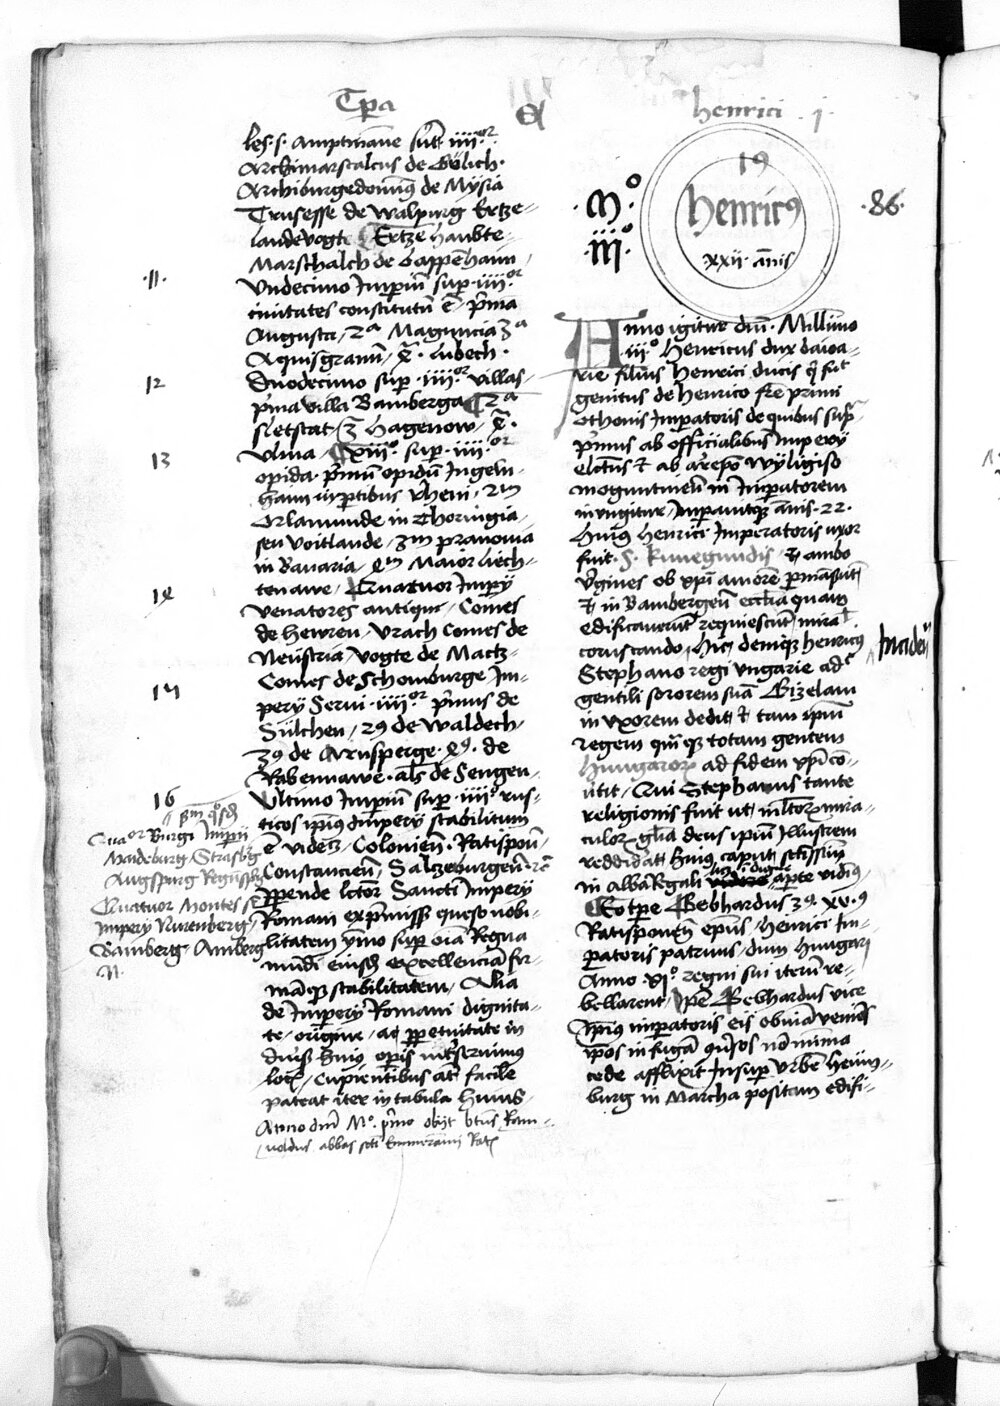 Tp̄a
Henrici j
les. s. Amptmāne sūt iiiior
Archimarscalcus de Gülich.
Archiburgedominus de Mysia
Trusesse de Walpurg Ertze-
landevogte Ertzen haubte-
Marschalch de Bappenhaim
.11.
Undecimo Imperiū super iiiior
civitates constitutū ē prima
Augusta, 2a Maguncia 3a
Aquisgranū, 4. Lubech.
12
Duodecimo super iiiior villas
prima villa Bamberga 2a
sletstat, 3 Hagenow, 4.
13
Ulma, xiii super iiiior
opida primū opidū Ingeln-
haim in partibus Rheni, 2m
Orlamunde in Thoringia,
seu Voitlande, 3m
in Bavaria, 4m Maior Liech-
14
tenawe, Quatuor Imperij
venatores antiqui, Comes
de Hewren, Urach Comes de
Neüstria, Vogte de Matz-
Comes de Schomburge, Im-
15
perij Servi iiiior primus de
Sülchen, 29 de Waldech,
39 de Arnsperge. 49. de
Rabennawe. als de Sengen-
16
Ultimo Imperiū super iiiior rus-
ticos ipsius Imperij stabilitum
ē videlz, Colonien̄. Ratispon̄,
Constancien̄, Salzeburgen̄
perpende lector Sancti Imperij
Romani nobi-
litatem ymo super oīa Regna
mundi eiusdem excellenciā fir-
māque stabilitatem, Alia
de Imperij Romani dignita-
te, origine, ac perpetuitate in
diversis huius operis
locis, cupientibus aūt facile
pateat iter in tabula huius.
Anno dn̄i Mo. primo obijt btūs Ram-
voldus abbas sc̄ti Emmerāmi Rat
Quaor Burgi Imperij
Maideburg Strasbg
Augspurg
Quatuor Montes
Imperij Nurenberg
Bamberg Amberg
.Mo.
.iiio.
19
Henricus
xxii annis
.86.
Anno igitur dn̄i. Millimo
iiio Henricus dux baioa-
rie filius Henrici ducis q̄ fuit
genitus de Henrico frē primi
Othonis Imperatoris de quibus sup̄
primus ab officialibus Imperij
electus et ab arepo Wyligiso
moguntineñ in Imperatorem
inungitur, Imperavitque annis 22.
Huius Henrici Imperatoris uxor
fuit. S. Kunegundis, et ambo
virgines ob xp̄i amorē
et in Bambergen̄ ecclīa quam
edificaverūt requiescūt mira
coruscando, Hic denique Henricus
Stephano regi Ungarie adc
gentili sororem suā Gizelam
in uxorem dedit, et tam ipm̄
regem quā que totam gentem
Hungarorum ad fidem xp̄i cō-
vtit, Qui Stephanus tante
religionis fuit ut, mltorum mira-
culorum glīa deus ipm̄ Illustrem
reddidat, huius caput
in Albaregali aperte vidimus,
Eo tpe Gebhardus 39. xv.9
Ratisponen̄ epūs, Henrici Im-
peratoris patruus, dum Hungari
Anno xi9 regni sui iterū re-
bellarent, Ipē Gebhardus vice
ipsius imperatoris eis obviā veniēs
ipsos in fugā
cede afflixit, Insuper Urbē Heim-
burg in Marcha positam edifi-